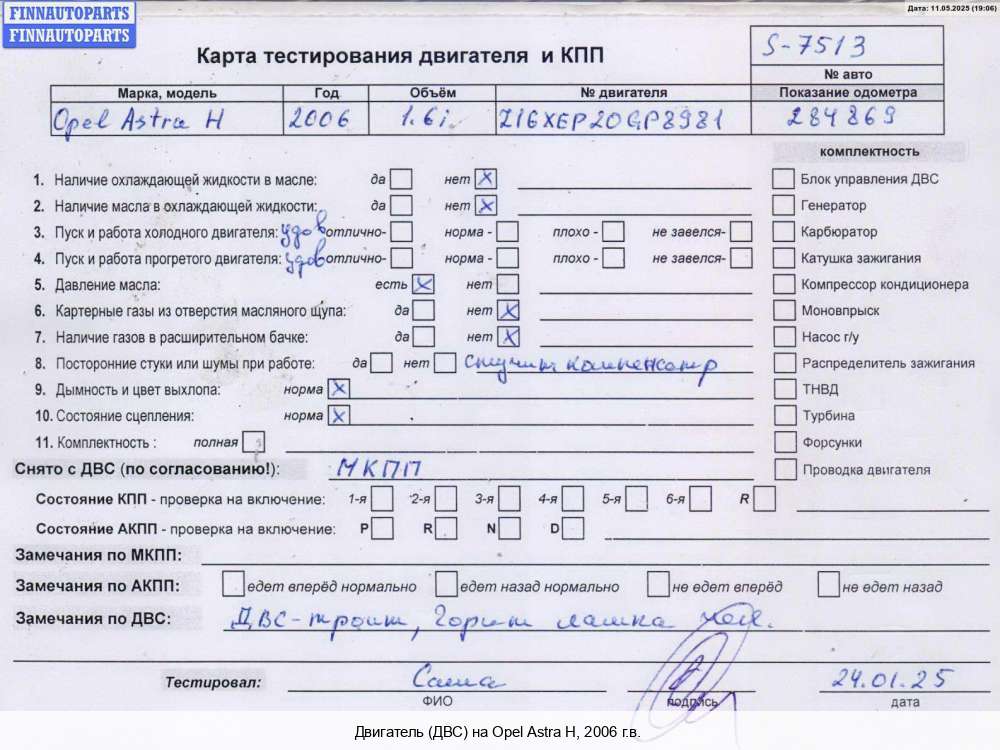 FINNAUTOPARTS
FINNAUTOPARTS
Дата: 11.05.2025 (19:06)
Карта тестирования двигателя и КПП
S-7513
№ авто
Марка, модель Год Объём № двигателя Показание одометра
Opel Astra H 2006 1.6i Z16XEP20GP8981 284869
комплектность
1. Наличие охлаждающей жидкости в масле: да нет X Блок управления ДВС
2. Наличие масла в охлаждающей жидкости: да нет X Генератор
3. Пуск и работа холодного двигателя: удов отлично- норма - плохо - не завелся- Карбюратор
4. Пуск и работа прогретого двигателя: удов отлично- норма - плохо - не завелся- Катушка зажигания
5. Давление масла: есть X нет Компрессор кондиционера
6. Картерные газы из отверстия масляного щупа: да нет X Моновпрыск
7. Наличие газов в расширительном бачке: да нет X Насос г/у
8. Посторонние стуки или шумы при работе: да нет стучит компенсатр Распределитель зажигания
9. Дымность и цвет выхлопа: норма X ТНВД
10. Состояние сцепления: норма X Турбина
11. Комплектность : полная Форсунки
Снято с ДВС (по согласованию!): МКПП Проводка двигателя
Состояние КПП - проверка на включение: 1-я 2-я 3-я 4-я 5-я 6-я R
Состояние АКПП - проверка на включение: P R N D
Замечания по МКПП:
Замечания по АКПП: едет вперёд нормально едет назад нормально не едет вперёд не едет назад
Замечания по ДВС: ДВС-троит, Горит лампа
Тестировал: Саша 24.01.25
ФИО подпись дата
Двигатель (ДВС) на Opel Astra H, 2006 г.в.